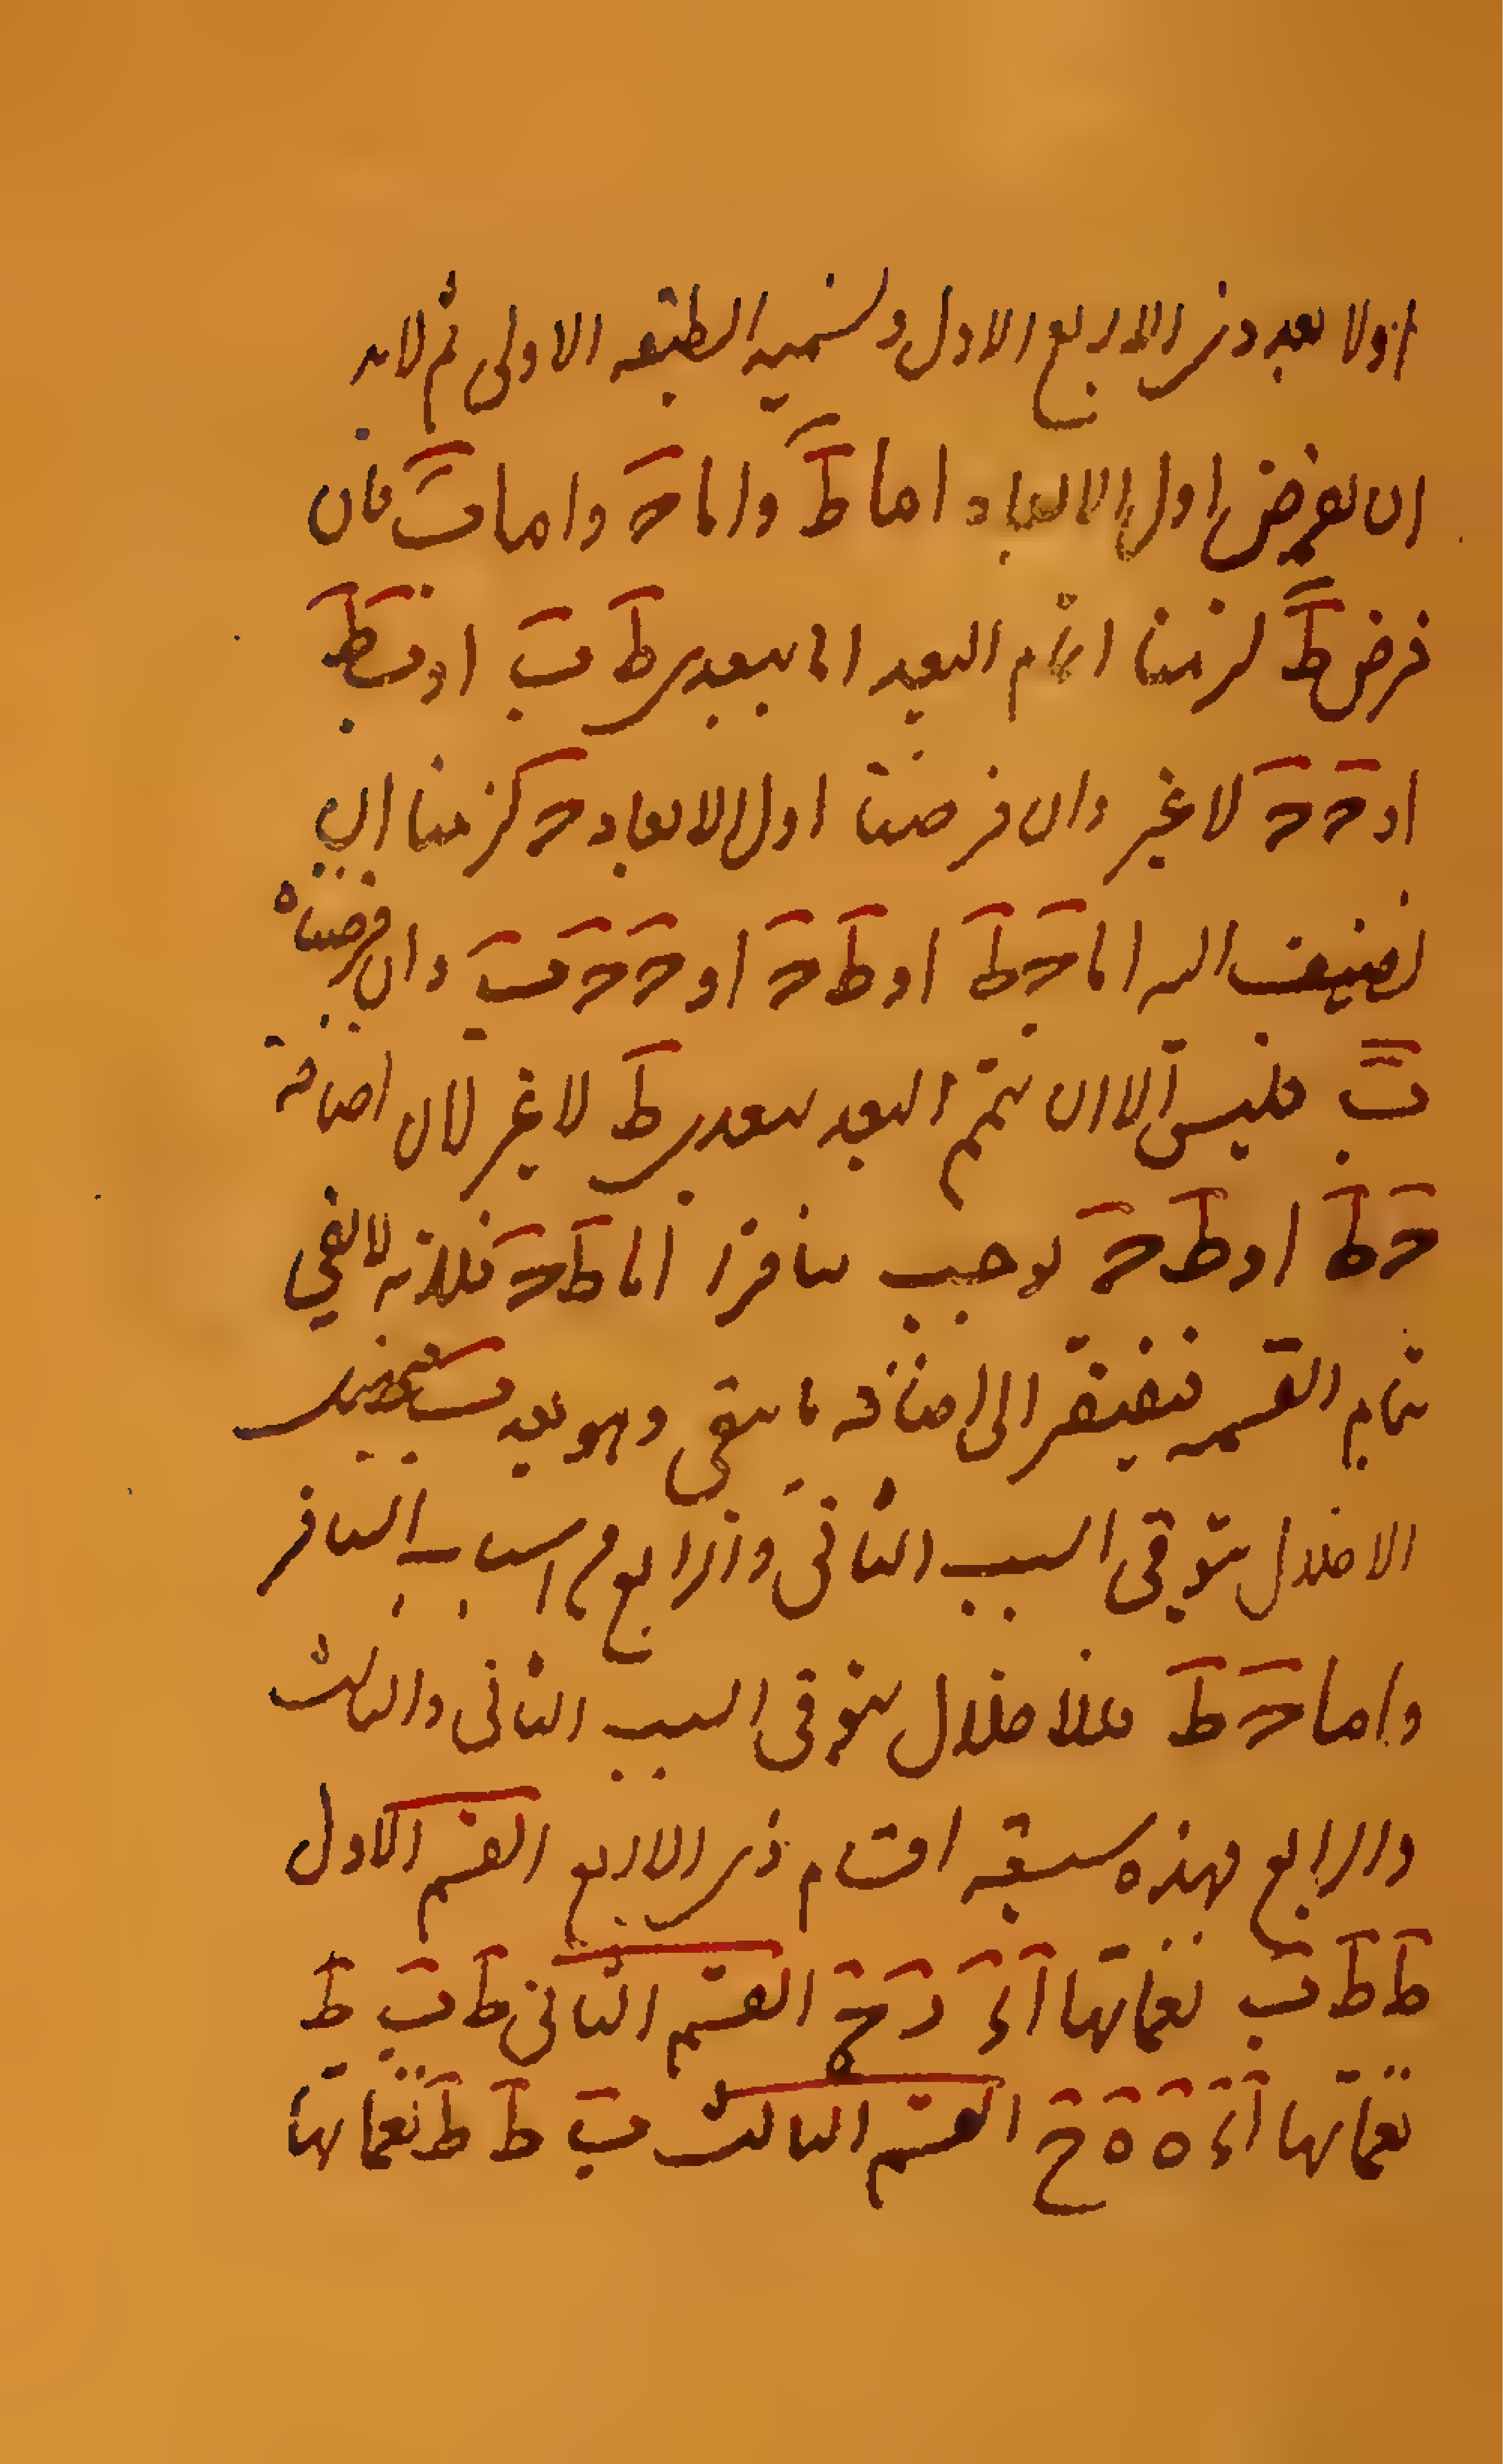 اولا بعد ذى الاربع الاول ونسميه الطبقه الاولى ثم لابد
ان نفرض اول الابعاد اما ط واما ج واما ب فان
فرض ط لزمنا اتمام البعد اما ببعدى ط ب او ب ط
او ج ج لا غير وان فرضنا اول الابعاد ج لزمنا ان
نضيف اليه اما ج ط او ط ج او ج ج ب وان فرضناه
ب فليس الا ان نتمم البعد ببعدى ط لا غير لان اضافة
ج ط او ط ج يوجب تنافرا اما ط ج فلانه لا يفي
بتمام القسمه فيفتقر الى اضافة ما يبقى وهو بعد ب
الاخلال بتوقى السبب الثانى والرابع من اسباب التنافر
واما ج ط فللاخلال بتوقى السبب الثانى والثالث
والرابع فهذه سبعة اقسام ذى الاربع القسم الاول
ط ط ب نغماتها ا د ز ح القسم الثانى ط ب ط
نغماتها ا د ه ح القسم الثالث ب ط ط نغماتها